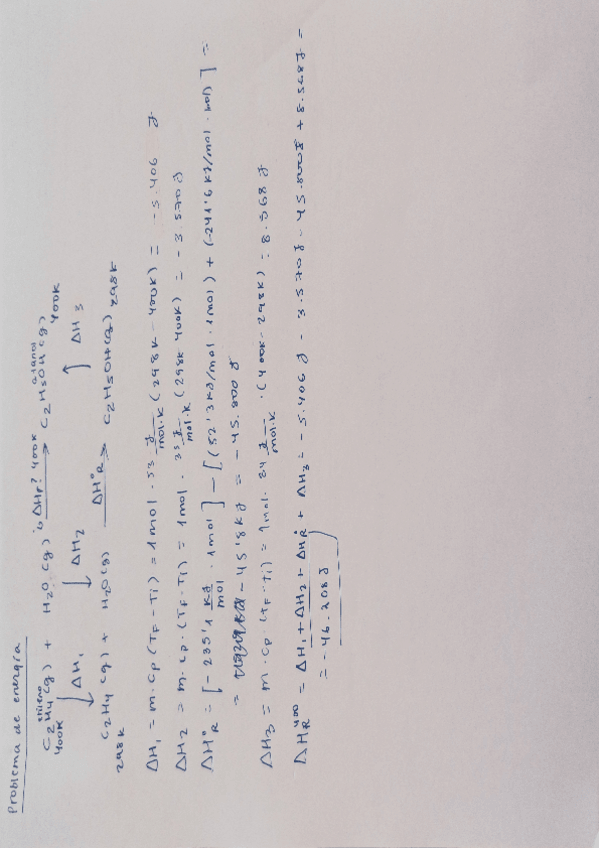 Problema de energía
etileno etanol
C2H4(g) + H2O(g) ¿ΔHr? 400K → C2H5OH(g)
400K 400K
↓ ΔH1 ↓ ΔH2 ↑ ΔH3
C2H4(g) + H2O(g) ΔH°R → C2H5OH(g) 298K
298K
ΔH1 = m·cp (TF - Ti) = 1mol · 53 J/mol·K (298K - 400K) = -5.406 J
ΔH2 = m·cp·(TF-Ti) = 1mol · 35 J/mol·K (298K 400K) = -3.570J
ΔH°R = [-235'1 kJ/mol · 1mol] - [(52'3kJ/mol · 1mol) + (-241'6 kJ/mol · mol)] =
= -45'8kJ = -45.800 J
ΔH3 = m·cp·(TF-ti) = 1mol · 84 J/mol·K · (400K - 298K) = 8.568 J
ΔHR⁴⁰⁰ = ΔH1 + ΔH2 + ΔH°R + ΔH3 = -5.406 J - 3.570J - 45.800J + 8.568J =
= -46.208J